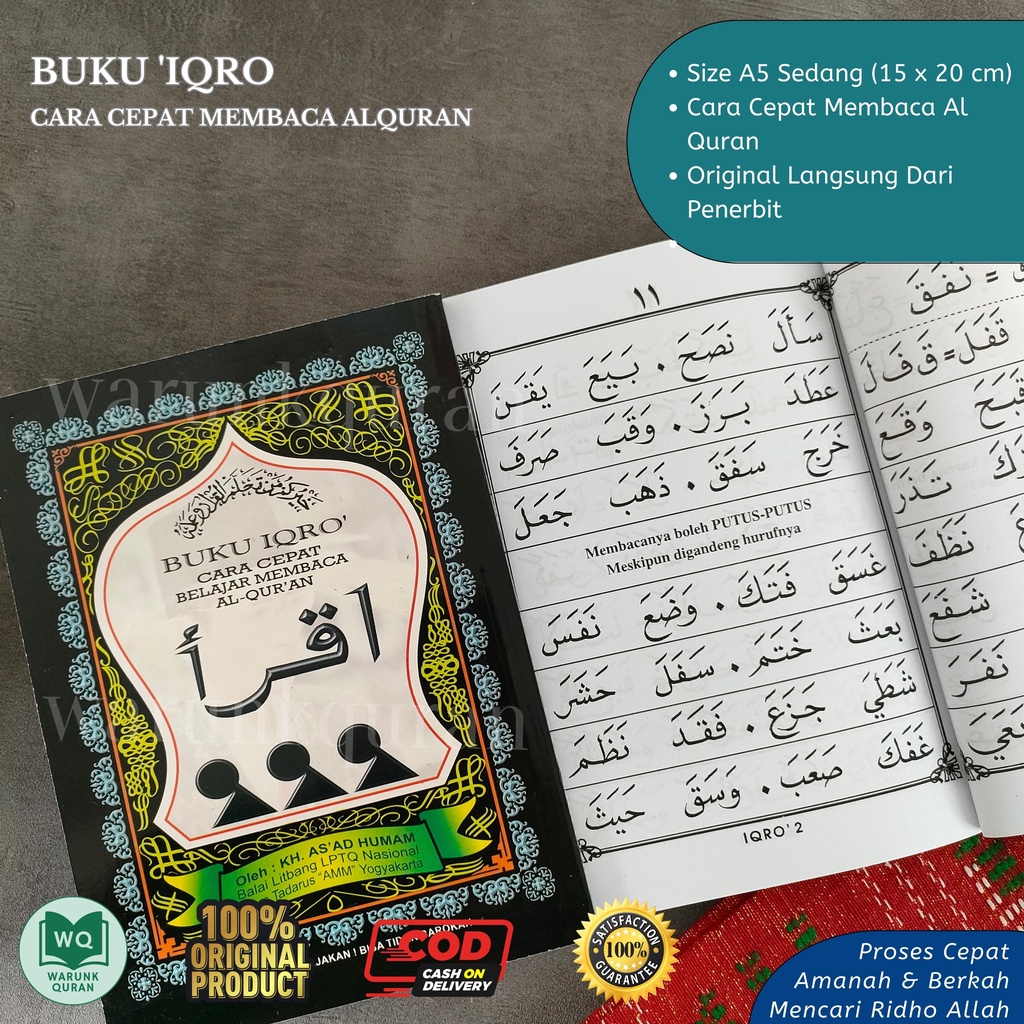 BUKU 'IQRO
CARA CEPAT MEMBACA ALQURAN
• Size A5 Sedang (15 x 20 cm)
• Cara Cepat Membaca Al
Quran
• Original Langsung Dari
Penerbit
warunkquran
BUKU IQRO'
CARA CEPAT
BELAJAR MEMBACA
AL-QUR'AN
اقرأ
warunkquran
Oleh : KH. AS'AD HUMAM
Balai Litbang LPTQ Nasional
Tadarus "AMM" Yogyakarta
١١
سَأَلَ نَصَحَ . بَيَعَ يَقَنَ
عَطَدَ بَرَزَ . وَقَبَ صَرَفَ
خَرَجَ سَفَقَ . ذَهَبَ جَعَلَ
Membacanya boleh PUTUS-PUTUS
Meskipun digandeng hurufnya
غَسَقَ فَتَكَ . وَضَعَ نَفَسَ
بَعَثَ خَتَمَ . سَفَلَ حَشَرَ
شَطَيَ جَزَعَ . فَقَدَ نَظَمَ
غَفَكَ صَعَبَ . وَسَقَ حَيَثَ
IQRO' 2
= نَفَقَ
قَفَلَ = قَ فَ لَ
وَقَعَ
تَذَرَ
نَظَفَ
شَفَعَ
نَفَرَ
WQ
WARUNK
QURAN
100%
ORIGINAL
PRODUCT
COD
CASH ON
DELIVERY
SATISFACTION
100%
GUARANTEE
Proses Cepat
Amanah & Berkah
Mencari Ridho Allah